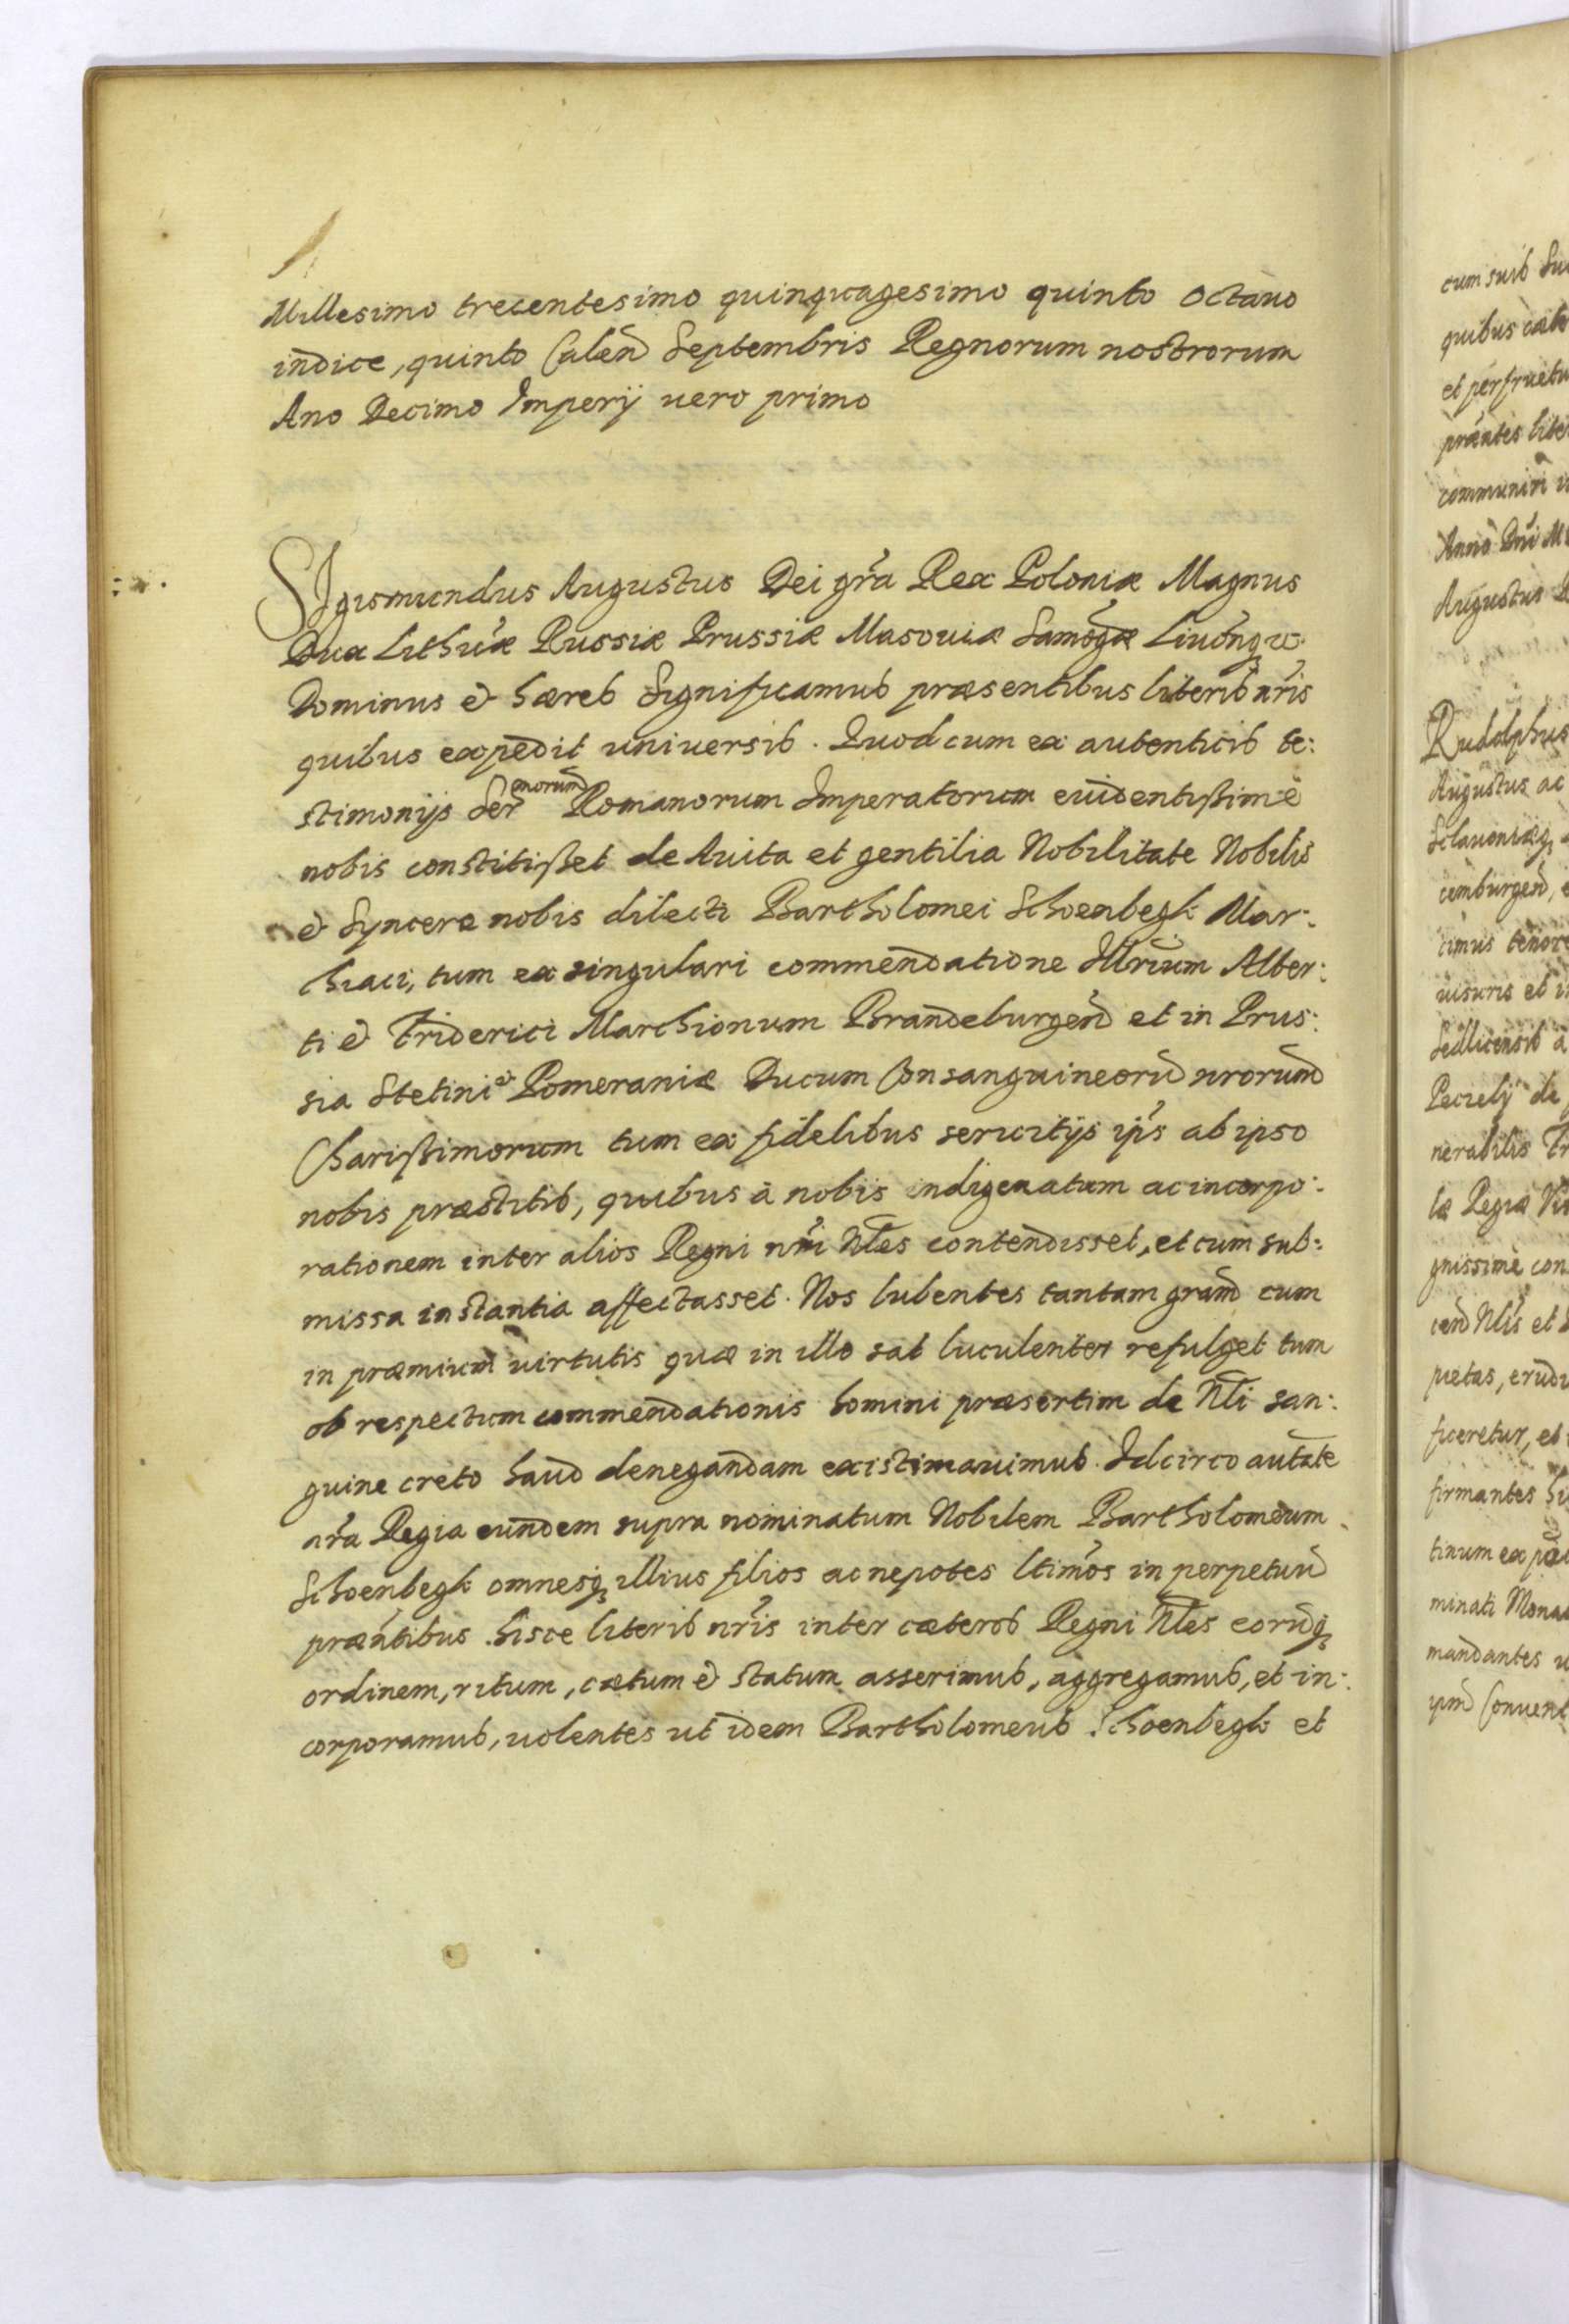 Millesimo trecentesimo quinquagesimo quinto octavo
indice, quinto Calend Septembris Regnorum nostrorum
Ano Decimo Imperij uero primo
Sigismundus Augustus Dei gra Rex Poloniæ Magnus
Dux Lithuæ Russiæ Prussiæ Masouiæ Samogæ Liuonq
Dominus et hæres Significamus præsentibus literis nris
quibus expedit uniuersis. Quod cum ex autenticis te:
stimonijs Ser morum Romanorum Imperatorum euidentißime
nobis constitißet de Auita et gentilia Nobilitate Nobilis
et Syncere nobis dilecti Bartholomei Schoenbegk Mar:
chiaci, tum ex singulari commendatione Illrium Alber:
ti et Friderici Marchionum Brandeburgen et in Prus:
sia Stetini et Pomeraniæ Ducum Consanguineoru nrorum
Charißimorum tum ex fidelibus seruitijs ips ab ipso
nobis præstitis, quibus à nobis indigenatum ac incorpo:
rationem inter alios Regni nri Nles contendisset, et cum sub:
missa instantia affectasset. Nos lubentes tantam gram cum
in præmium uirtutis quæ in illo sat luculenter refulget tum
ob respectum commendationis homini præsertim de Nli san:
guine creto haud denegandam existimauimus. Idcirco autate
nra Regia eundem supra nominatum Nobilem Bartholomeum
Schoenbegk omnesq illius filios ac nepotes ltimos in perpetuu
præntibus hisce literis nris inter cæteros Regni Nles eoruq
ordinem, ritum, cætum et statum asserimus, aggregamus, et in:
corporamus, uolentes ut idem Bartholomeus Schoenbegk et
cum suis
quibus
et
præntes
communiri
Anno Dni
Augustus
Rudolphus
Augustus ac
Sclauoniæq
cimus tenore
uisuris et
Sedlicensis à
de
nerabilis
læ Regiæ
gnissime con
Nlis et
pietas,
ficeretur, et
firmantes
tinum ex
minati
mandantes
Conuent